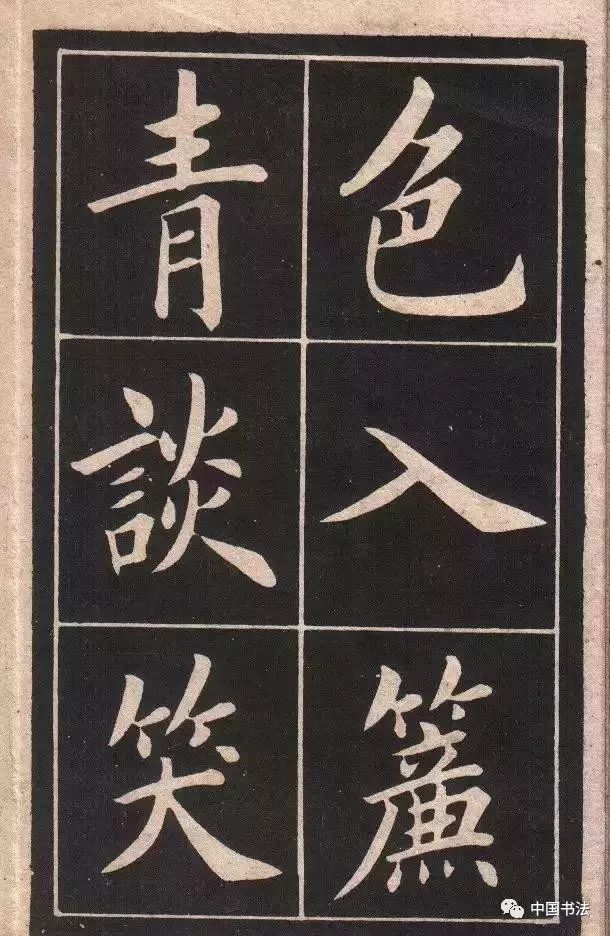 色入簾
青談笑
中国书法